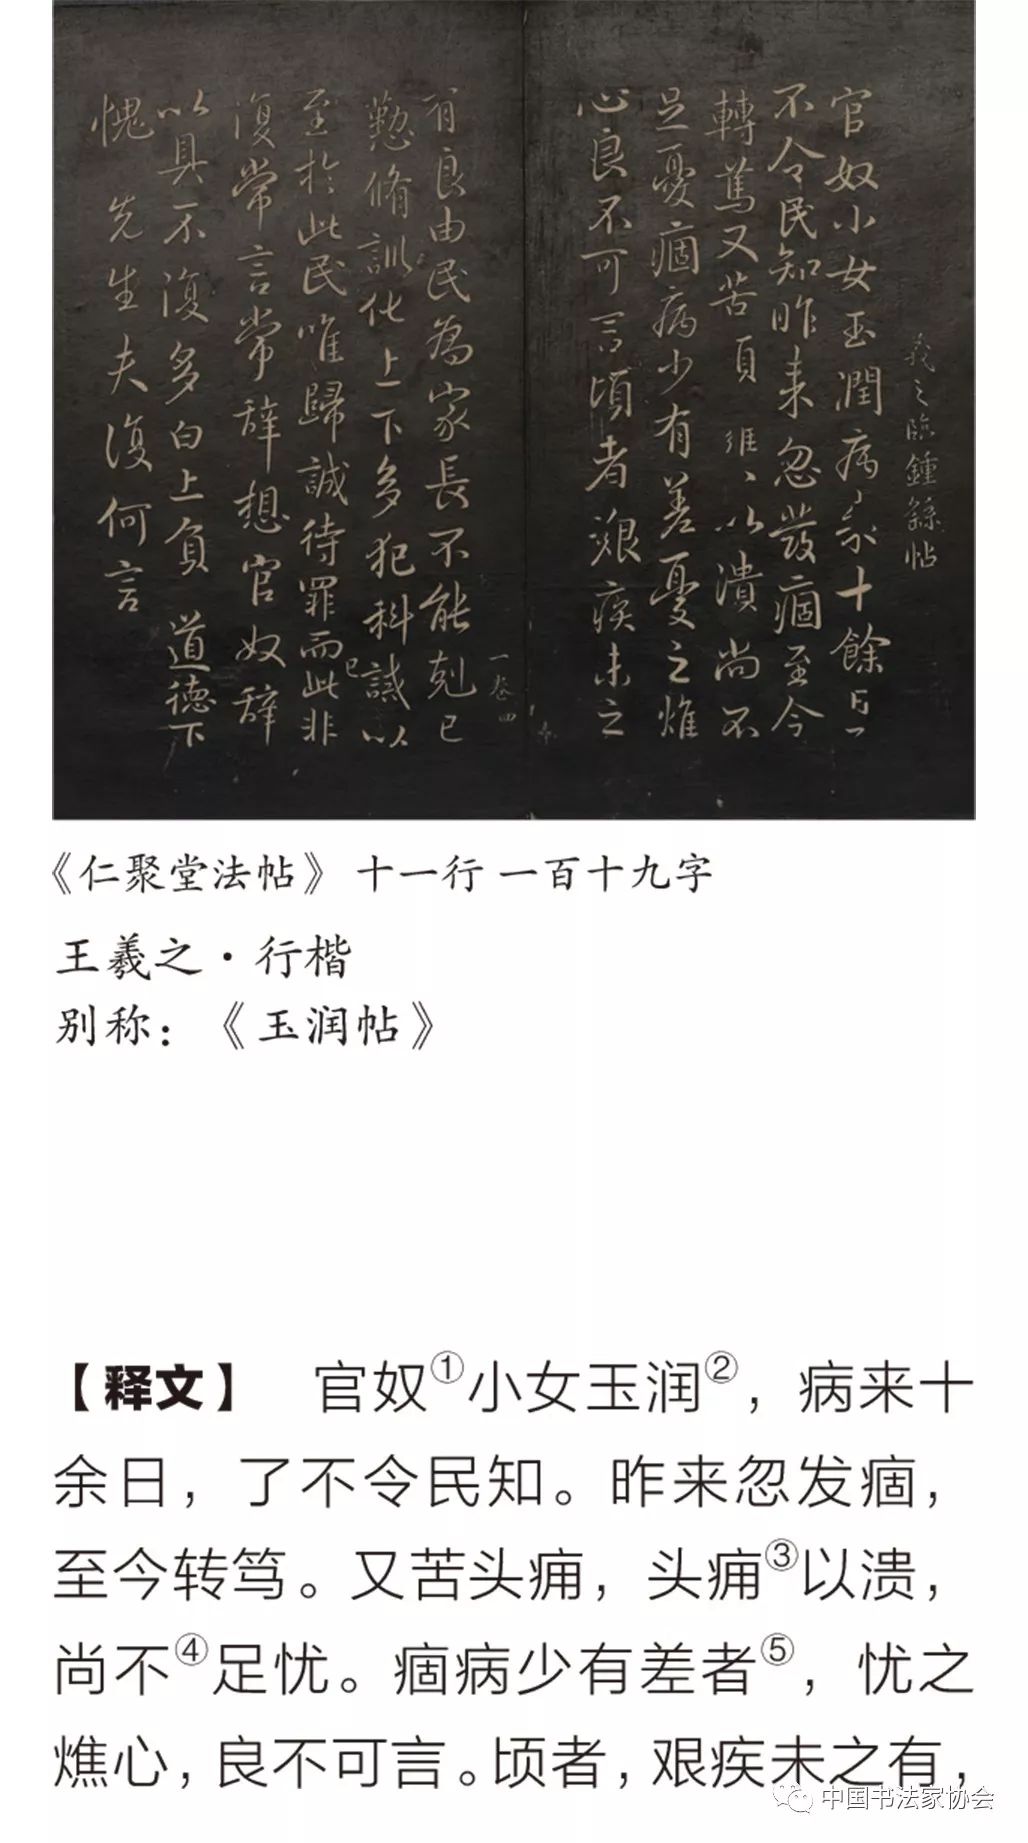 羲之臨鍾繇帖
官奴小女玉潤病来十餘日了
不令民知昨来忽發痼至今
轉篤又苦頭癕以潰尚不
足憂痼病少有差憂之燋
心良不可言頃者艱疾未之
一卷四
有良由民為家長不能剋己
懃脩訓化上下多犯科誡以
至於此民唯歸誠待罪而此非
復常言常辞想官奴辞
已
以具不復多白上負道德下
愧先生夫復何言
《仁聚堂法帖》 十一行 一百十九字
王羲之·行楷
别称：《玉润帖》
【释文】 官奴①小女玉润②，病来十
余日，了不令民知。昨来忽发痼，
至今转笃。又苦头痈，头痈③以溃，
尚不④足忧。痼病少有差者⑤，忧之
燋心，良不可言。顷者，艰疾未之有，
中国书法家协会